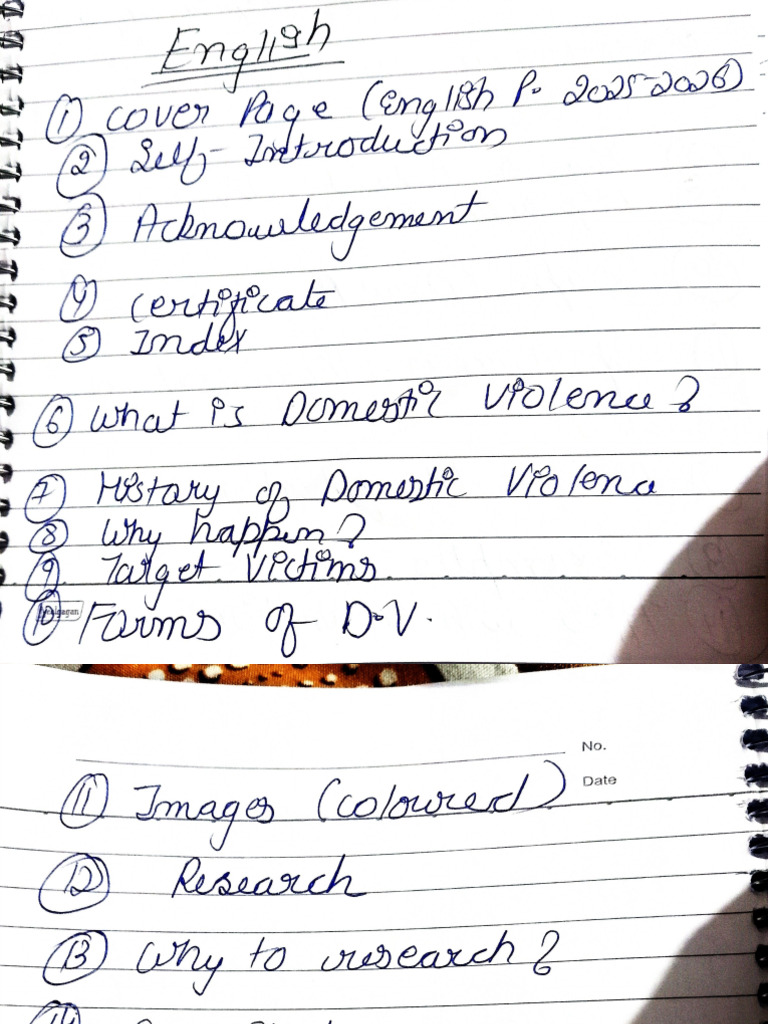 English
① Cover Page (English P. 2025-2026)
② Self-Introduction
③ Acknowledgement
④ Certificate
⑤ Index
⑥ What is Domestic Violence?
⑦ History of Domestic Violence
⑧ Why happen?
⑨ Target Victims
⑩ Forms of D.V.
No.
Date
⑪ Images (coloured)
⑫ Research
⑬ Why to research?
⑭